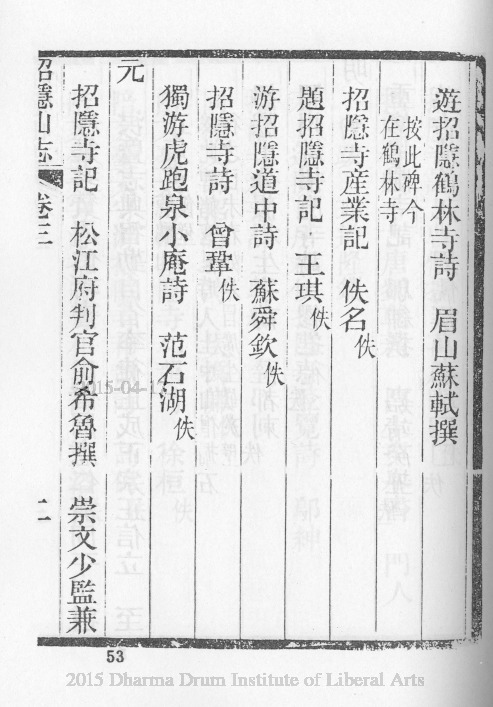 遊招隱鶴林寺詩　眉山蘇軾撰
按此碑今
在鶴林寺
招隱寺産業記　佚名佚
題招隱寺記　王琪佚
游招隱道中詩　蘇舜欽佚
招隱寺詩　曾鞏佚
獨游虎跑泉小庵詩　范石湖佚
元
招隱寺記　松江府判官俞希魯撰　崇文少監兼
招隱山志　卷三　二
2015-04-
53
2015 Dharma Drum Institute of Liberal Arts